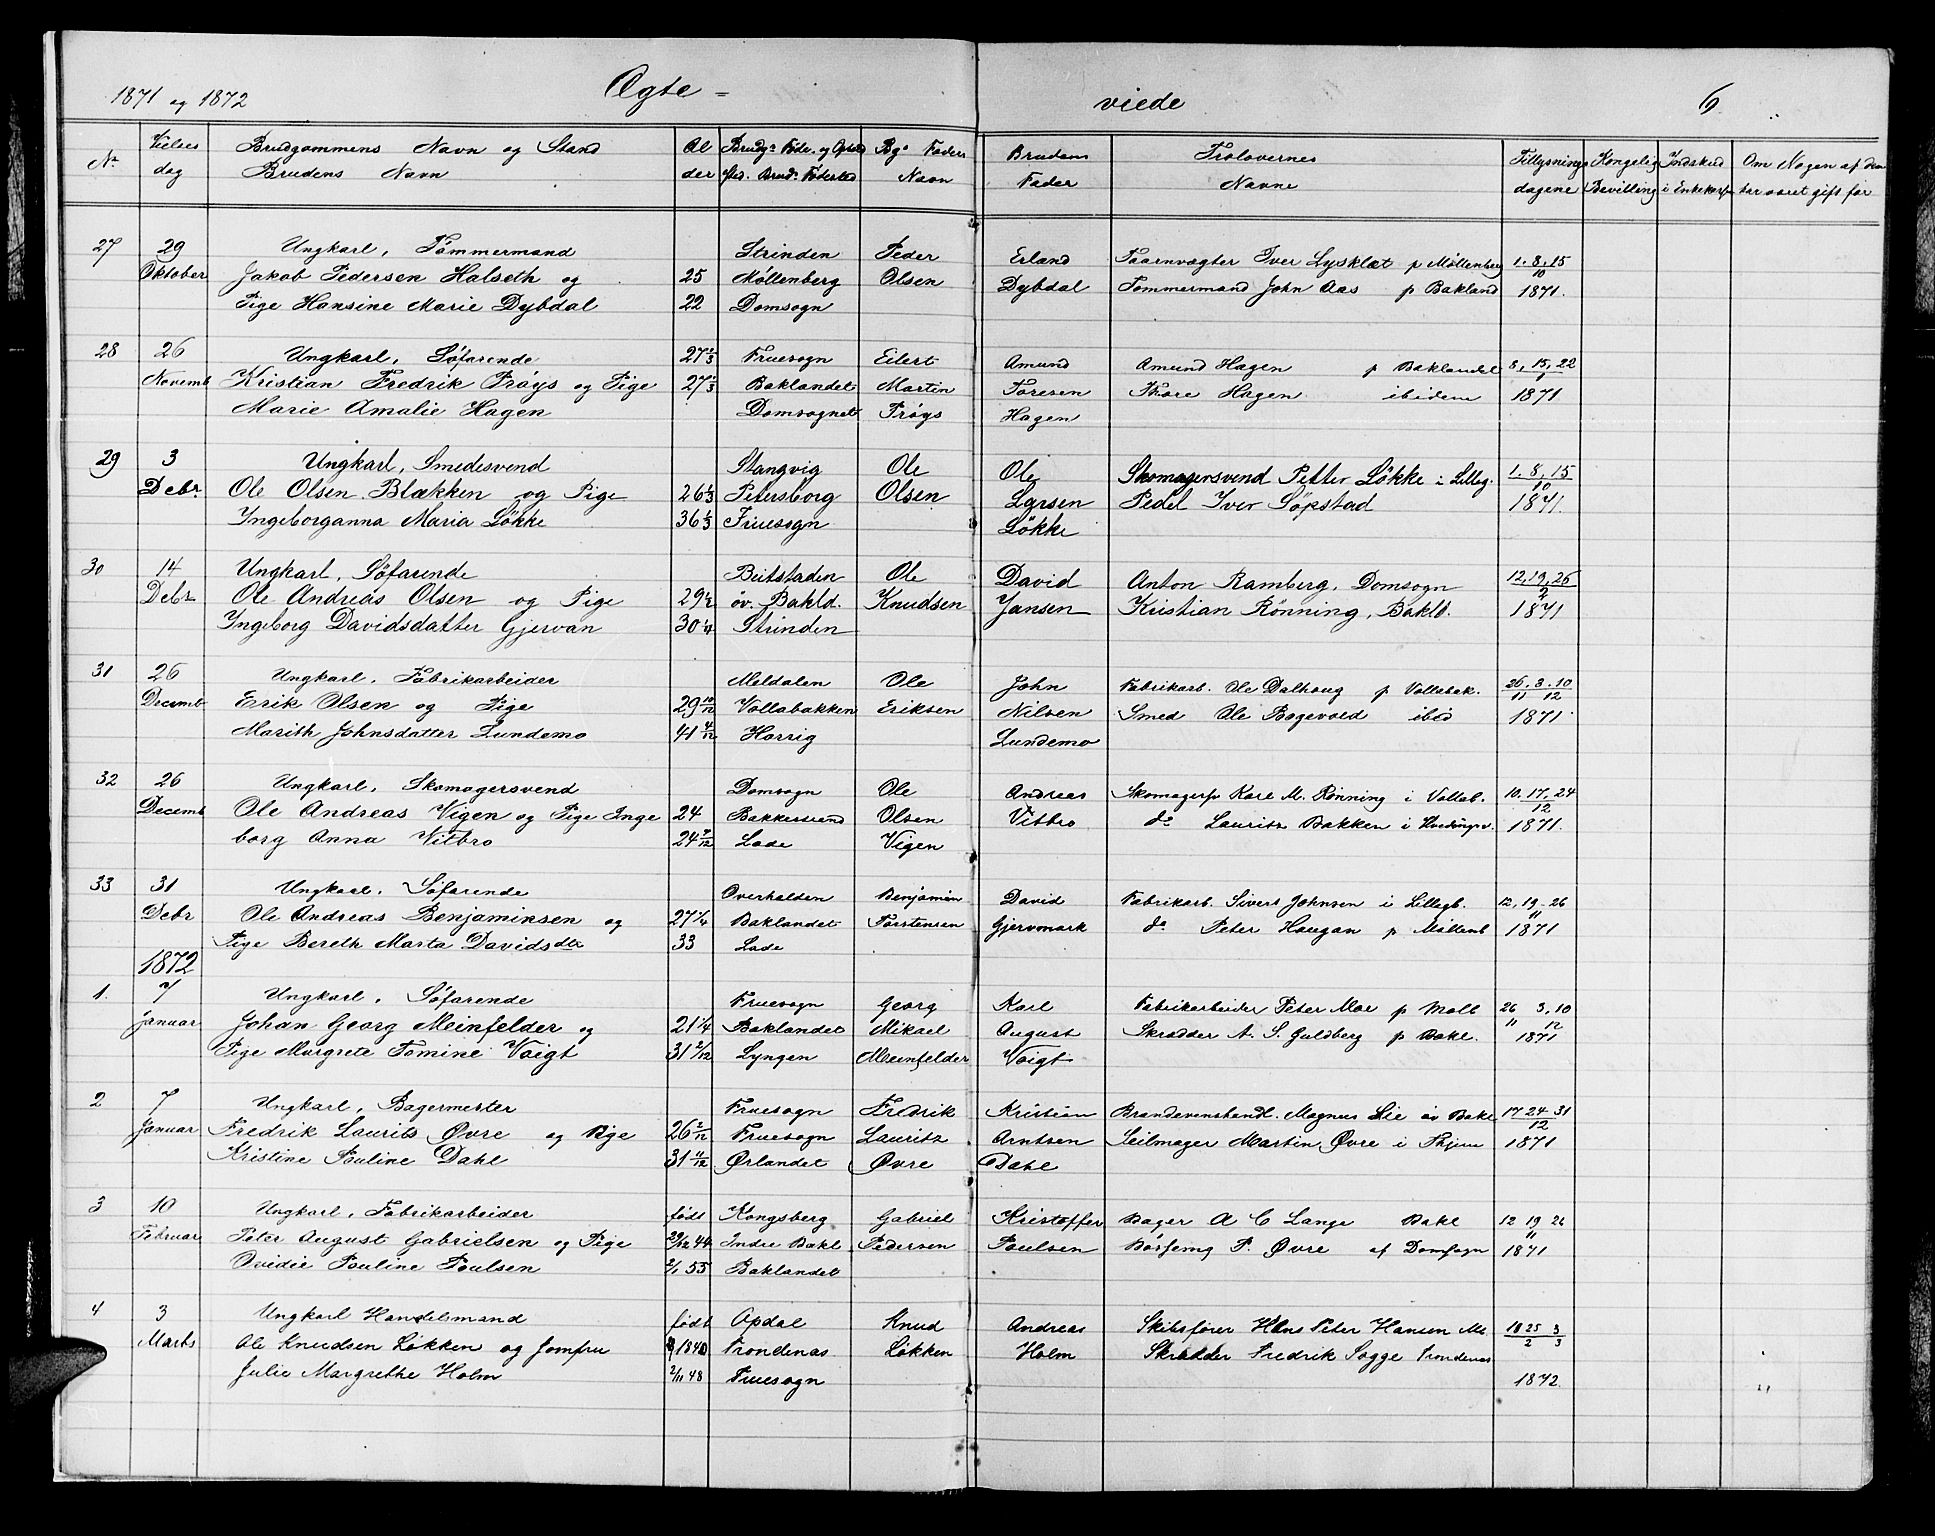 1871 og 1872 Ægte = viede 6
No Vielses dag Brudgommens Navn og Stand Brudens Navn Alder Brudgs Føde og Opholds sted. Bruds Fødested Bgs Faders Navn Brudens Fader Trolovernes Navne Tillysnings dagene Kongelig Bevilling Indskud i Enkekasse Om Nogen af dem har været gift før
27 29 Ungkarl, Tömmermand Strinden Peder Erland Taarnvægter Iver Lysklæt p Möllenberg 1. 8. 15
Oktober Jakob Pedersen Halseth og 25 Möllenberg Olsen Dybdal Tömmermand John Aas p Bakland 10 1871.
Pige Hansine Marie Dybdal 22 Domsogn
28 26 Ungkarl, Söfarende 27 Fruesogn Eilert Amund Amund Hagen p Baklandet 8, 15, 22
Novemb Kristian Fredrik Pröys og Pige 27 Baklandet Martin Toresen Thore Hagen ibidem 1871
Marie Amalie Hagen Domsognet Pröys Hagen
29 3 Ungkarl, Smedesvend Stangvig Ole Ole Skomagersvend Petter Lökke i Lilleg. 1. 8. 15
Debr. Ole Olsen Blækken og Pige 26 1/3 Petersborg Olsen Larsen Pedel Iver Söpstad 10 1871.
Ingeborganna Maria Lökke 36 1/3 Fruesogn Lökke
30 14 Ungkarl, Söfarende Beitstaden Ole David Anton Ramberg, Domsogn 12, 19, 26
Debr Ole Andreas Olsen og Pige 29 1/2 öv. Bakld. Knudsen Jansen Kristian Rönning, Bakld. 1871
Ingeborg Davidsdatter Gjervan 30 1/4 Strinden
31 26 Ungkarl, Fabrikarbeider Meldalen Ole John Fabrikarb. Ole Dalhoug p Vollabak. 26. 3. 10
Decemb Erik Olsen og Pige 29 10/12 Vollabakken Eriksen Nilsen Smed Ole Bogevold ibid 11 12 1871
Marith Johnsdatter Lundemo 41 4/12 Horrig Lundemo
32 26 Ungkarl, Skomagersvend Domsogn Ole Andreas Skomagersv Kare M. Rönning i Vollab. 10. 17. 24
Decemb Ole Andreas Vigen og Pige Inge 24 Bakkestrand Olsen Vitbro do Lauritz Bakken i 12 1871.
borg Anna Vitbro 24 Lade Vigen
33 31 Ungkarl, Söfarende Overhalden Benjamin David Fabrikarb. Sivert Johnsen i Lillegb. 12, 19 26
Debr Ole Andreas Benjaminsen og 27 1/4 Baklandet Torstensen Gjervmark do Peter Haugan p Möllenb 11 1871
Pige Bereth Marta Davidsdtr 33 Lade
1872
1. 7 Ungkarl, Söfarende Fruesogn Georg Karl Fabrikarbeider Peter Moe p Molb 26 3, 10
Januar Johan Georg Meinfelder og 21 1/4 Baklandet Mikael August Skrædder A. S. Guldberg p Bakl. 11 12 1871
Pige Margrete Tomine Voigt 31 2/12 Lyngen Meinfelder Voigt
2 7 Ungkarl, Bagermester Fruesogn Fredrik Kristian Brændevenshandl. Magnus Lie öv Bakl 17 24 31
Januar Fredrik Laurits Øvre og Pige 26 2/12 Fruesogn Lauritz Arntsen Seilmager Martin Øvre i 12 1871
Kristine Pauline Dahl 31 11/12 Ørlandet Øvre Dahl
3 10 Ungkarl, Fabrikarbeider født Kongsberg Gabriel Kristoffer Bager A C Lange Bakl 12 19 26
Februar Peter August Gabrielsen og Pige 29/12 44 Indre Bakl Pedersen Poulsen P. Øvre af Domsogn 11 1871
Ovidie Pauline Poulsen 2/1 55 Baklandet
4 3 Ungkarl Handelsmand født Opdal Knud Andreas Skibsfører Hans Peter Hansen 18 25 3
Marts Ole Knudsen Løkken og Jomfru 1840 Trondenæs Løkken Holm Skrædder Fredrik Sogge Trondenæs 2 3
Julie Margrethe Holm 2/11 48 Fruesogn 1872.